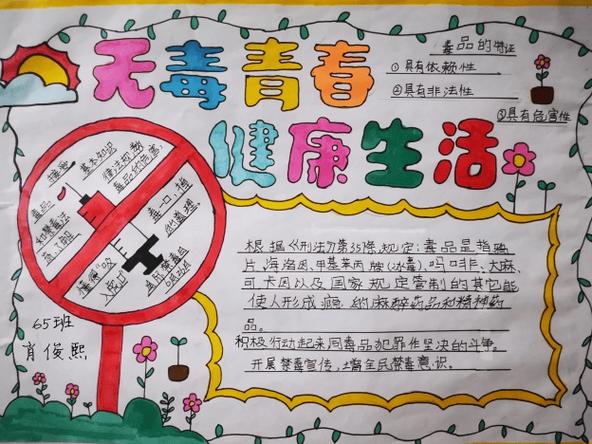 无毒青春
健康生活
毒品的特征
①具有依赖性
②具有非法性
③具有危害性
接受
基本知识
毒品的危害,
毒品
和禁毒法
吸一口,掉
懂得"吸
入虎口"
根据《刑法》第357条规定:毒品是指鸦
片、海洛因、甲基苯丙胺(冰毒)、吗啡、大麻、
可卡因以及国家规定管制的其它能
使人形成瘾的麻醉药品和精神药
品。
积极行动起来同毒品犯罪作坚决的斗争。
开展禁毒宣传,增全民禁毒意识。
65班
肖俊熙